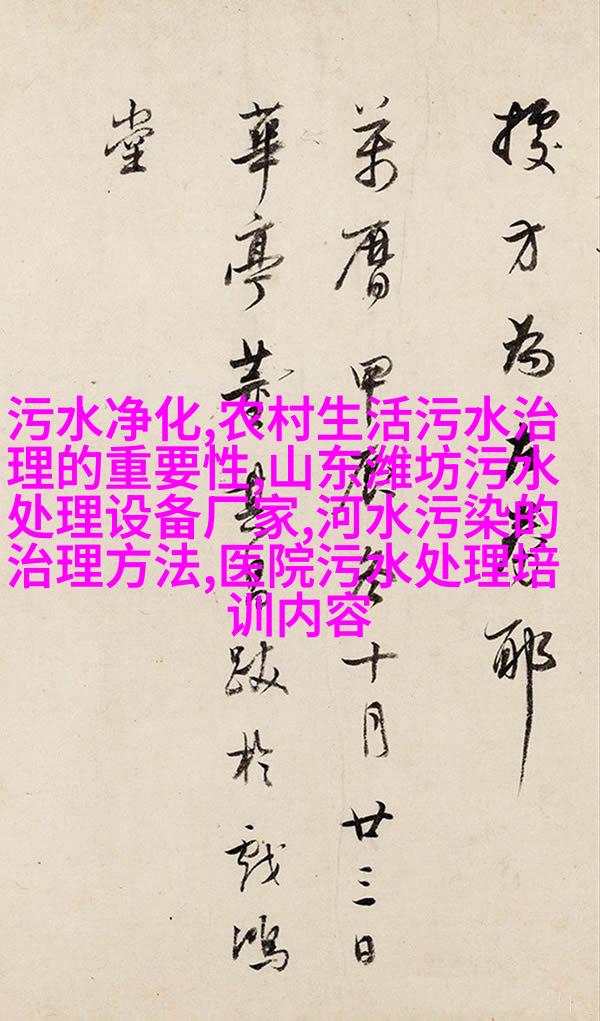 方為左券耶
萬曆甲辰冬十月廿三日
華亭董其昌跋於戲鴻
堂
污水净化,农村生活污水治
理的重要性,山东潍坊污水
处理设备厂家,河水污染的
治理方法,医院污水处理培
训内容